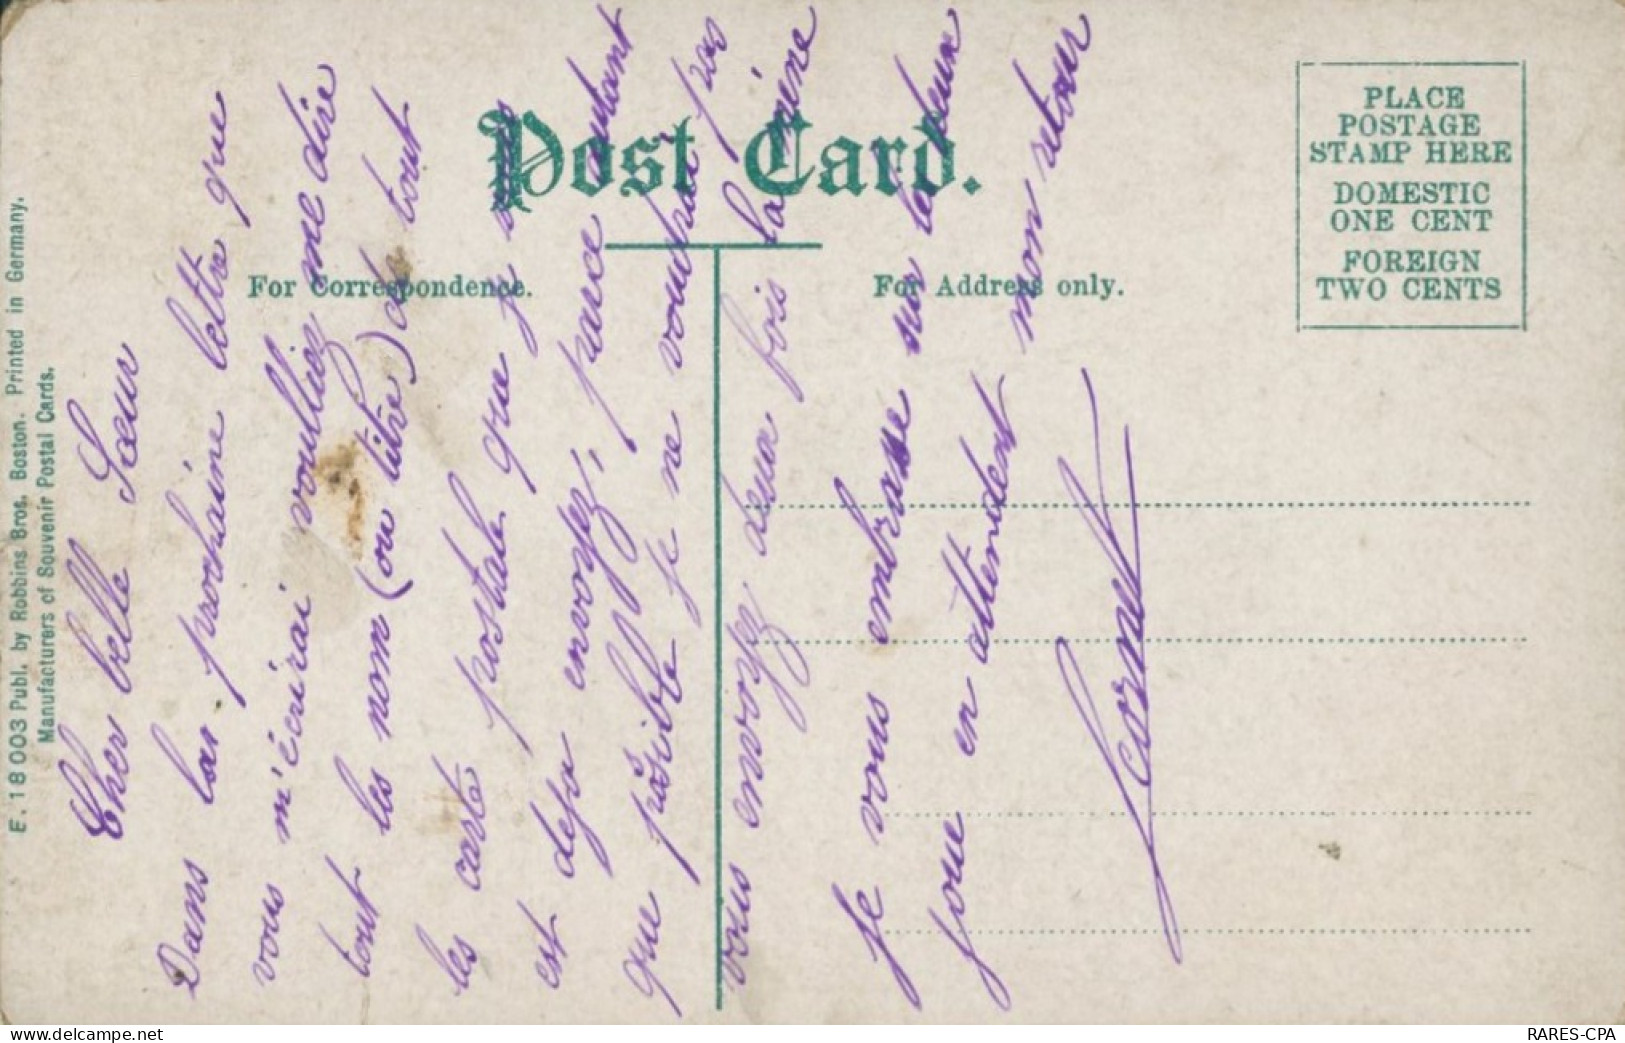 Post Card.
For Correspondence.
For Address only.
PLACE
POSTAGE
STAMP HERE
DOMESTIC
ONE CENT
FOREIGN
TWO CENTS
E. 18003 Publ. by Robbins Bros. Boston. Printed in Germany.
Manufacturers of Souvenir Postal Cards.
Cher belle Sœur
Dans la prochaine lettre que
vous m'écrirai voulliez me dire
tout les nom (ou titre) de tout
les carte postale que je vous
est deja envoyez, parce autant
que posible je ne voudrai pas
vous envoyez deux fois la même
Je vous embrasse sur les deux
joue en attendent mon retour
RARES-CPA